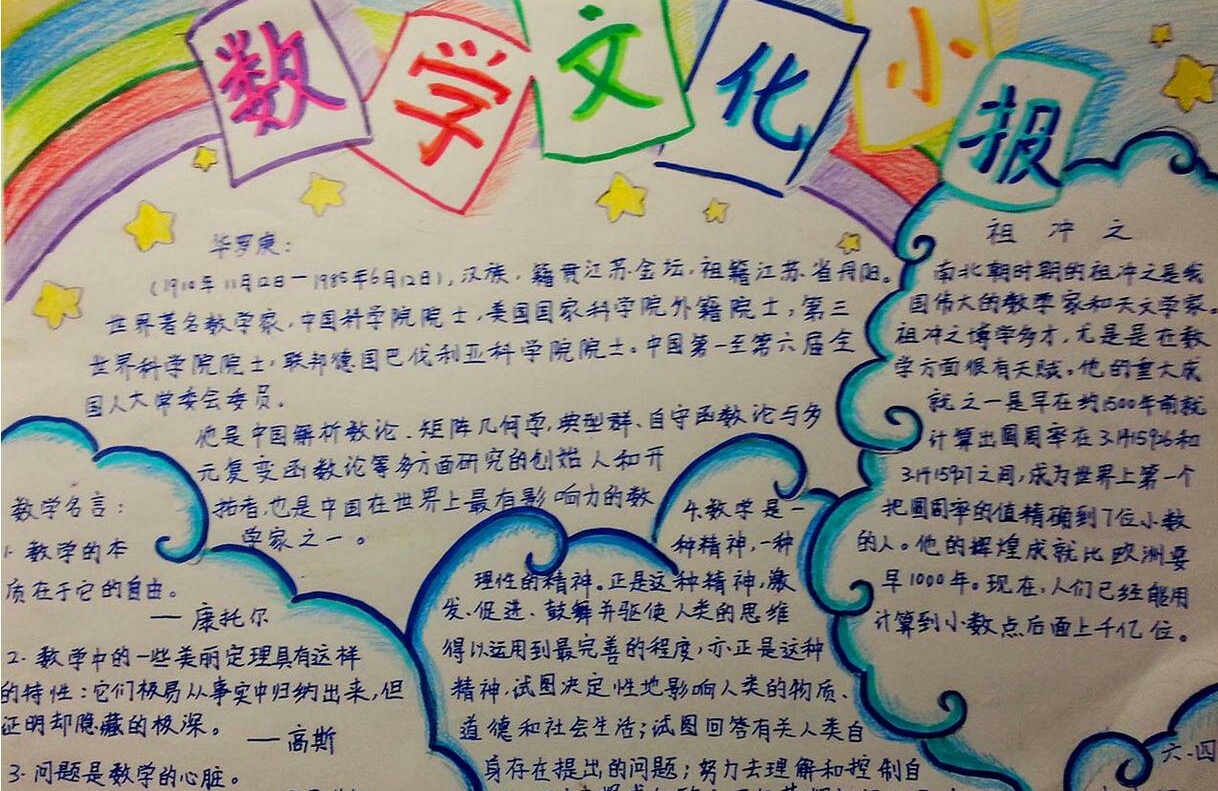 数学文化小报
华罗庚:
(1910年11月12日—1985年6月12日),汉族,籍贯江苏金坛,祖籍江苏省丹阳。
世界著名数学家,中国科学院院士,美国国家科学院外籍院士,第三
世界科学院院士,联邦德国巴伐利亚科学院院士。中国第一至第六届全
国人大常委会委员。
他是中国解析数论、矩阵几何学,典型群、自守函数论与多
元复变函数论等多方面研究的创始人和开
拓者,也是中国在世界上最有影响力的数
学家之一。
祖冲之
南北朝时期的祖冲之是我
国伟大的数学家和天文学家。
祖冲之博学多才,尤是是在数
学方面很有天赋。他的重大成
就之一是早在约1500年前就
计算出圆周率在3.1415926和
3.1415927之间,成为世界上第一个
把圆周率的值精确到7位小数
的人。他的辉煌成就比欧洲要
早1000年。现在,人们已经能用
计算到小数点后面上千亿位。
数学名言:
1·数学的本
质在于它的自由。
—康托尔
2·数学中的一些美丽定理具有这样
的特性:它们极易从事实中归纳出来,但
证明却隐藏的极深。
—高斯
3·问题是数学的心脏。
4.数学是一
种精神,一种
理性的精神。正是这种精神,激
发、促进、鼓舞并驱使人类的思维
得以运用到最完善的程度,亦正是这种
精神,试图决定性地影响人类的物质、
道德和社会生活;试图回答有关人类自
身存在提出的问题;努力去理解和控制自
六·四